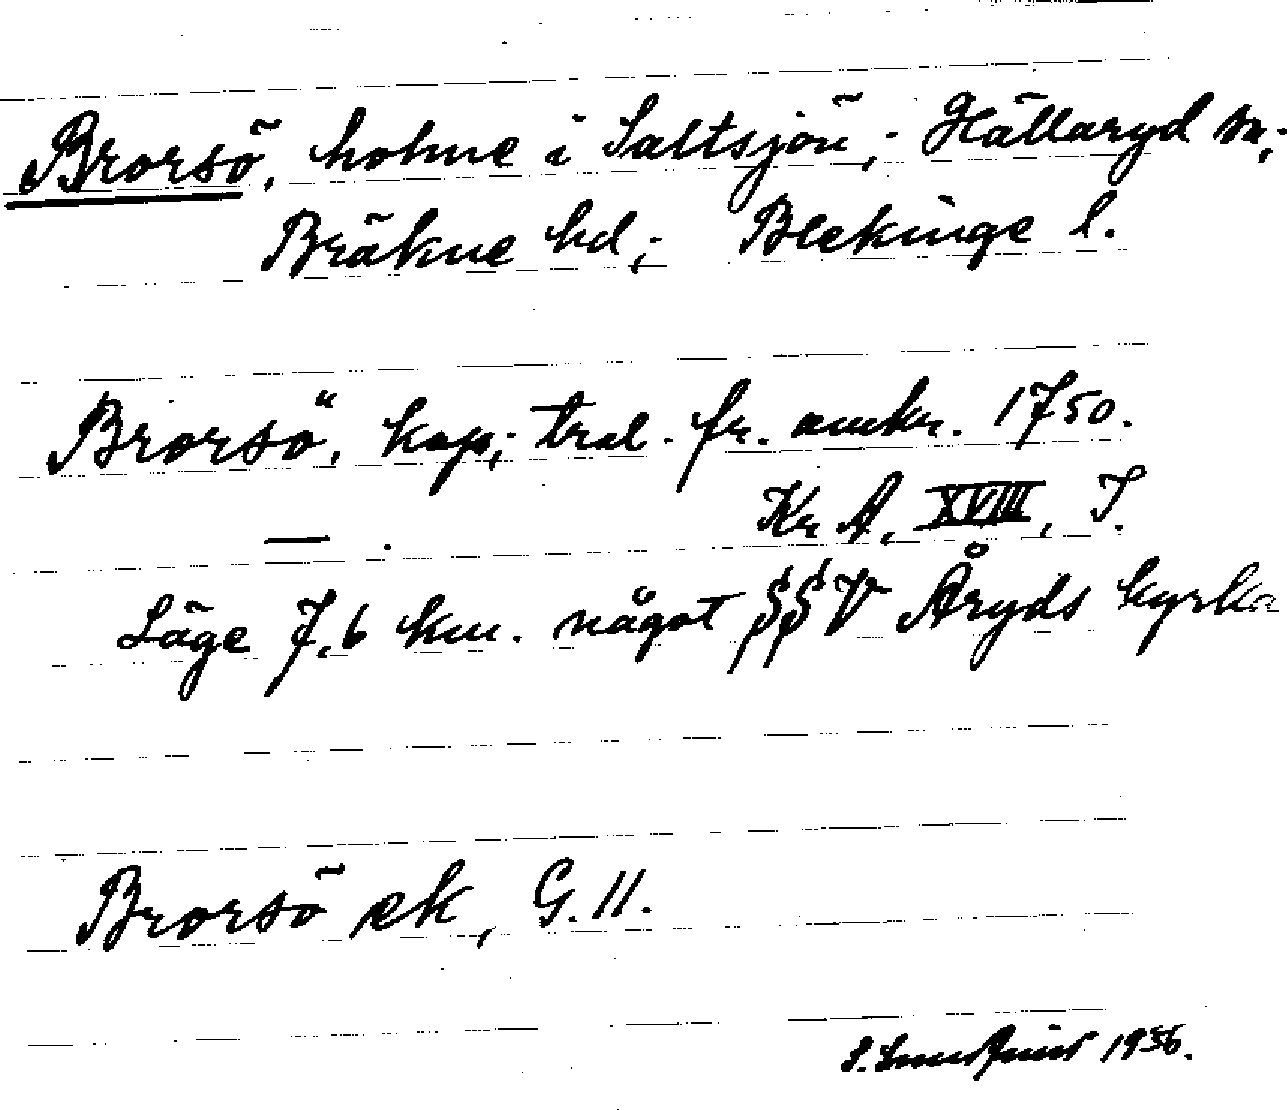 Brorsö, holme i Saltsjön, Hällaryd sn,
Bräkne hd, Blekinge l.
Brorsö, kop, tral. fr. omkr. 1750.
— . Kr A, XVIII, 7.
Läge 7,6 km. något SSV Åryds kyrka
Brorsö ek, G. 11.
1936.